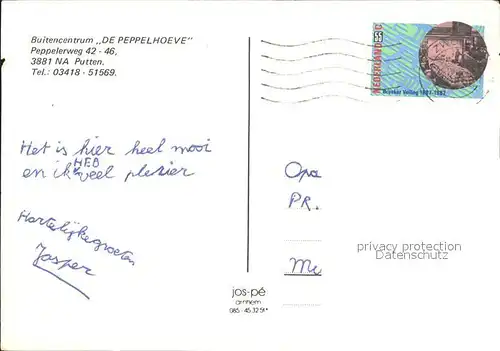 Buitencentrum „DE PEPPELHOEVE"
Peppelerweg 42 - 46,
3881 NA Putten.
Tel.: 03418 - 51569.
NEDERLAND
55 c
Bloemen Veiling 1887-1987
Het is hier heel mooi
en ik HEB veel plezier
Hartelijke groeten
Jasper
Opa
PR.
Me
privacy protection
AnsichtskartenCenter.de
jos-pé
arnhem
085 - 45 32 51*